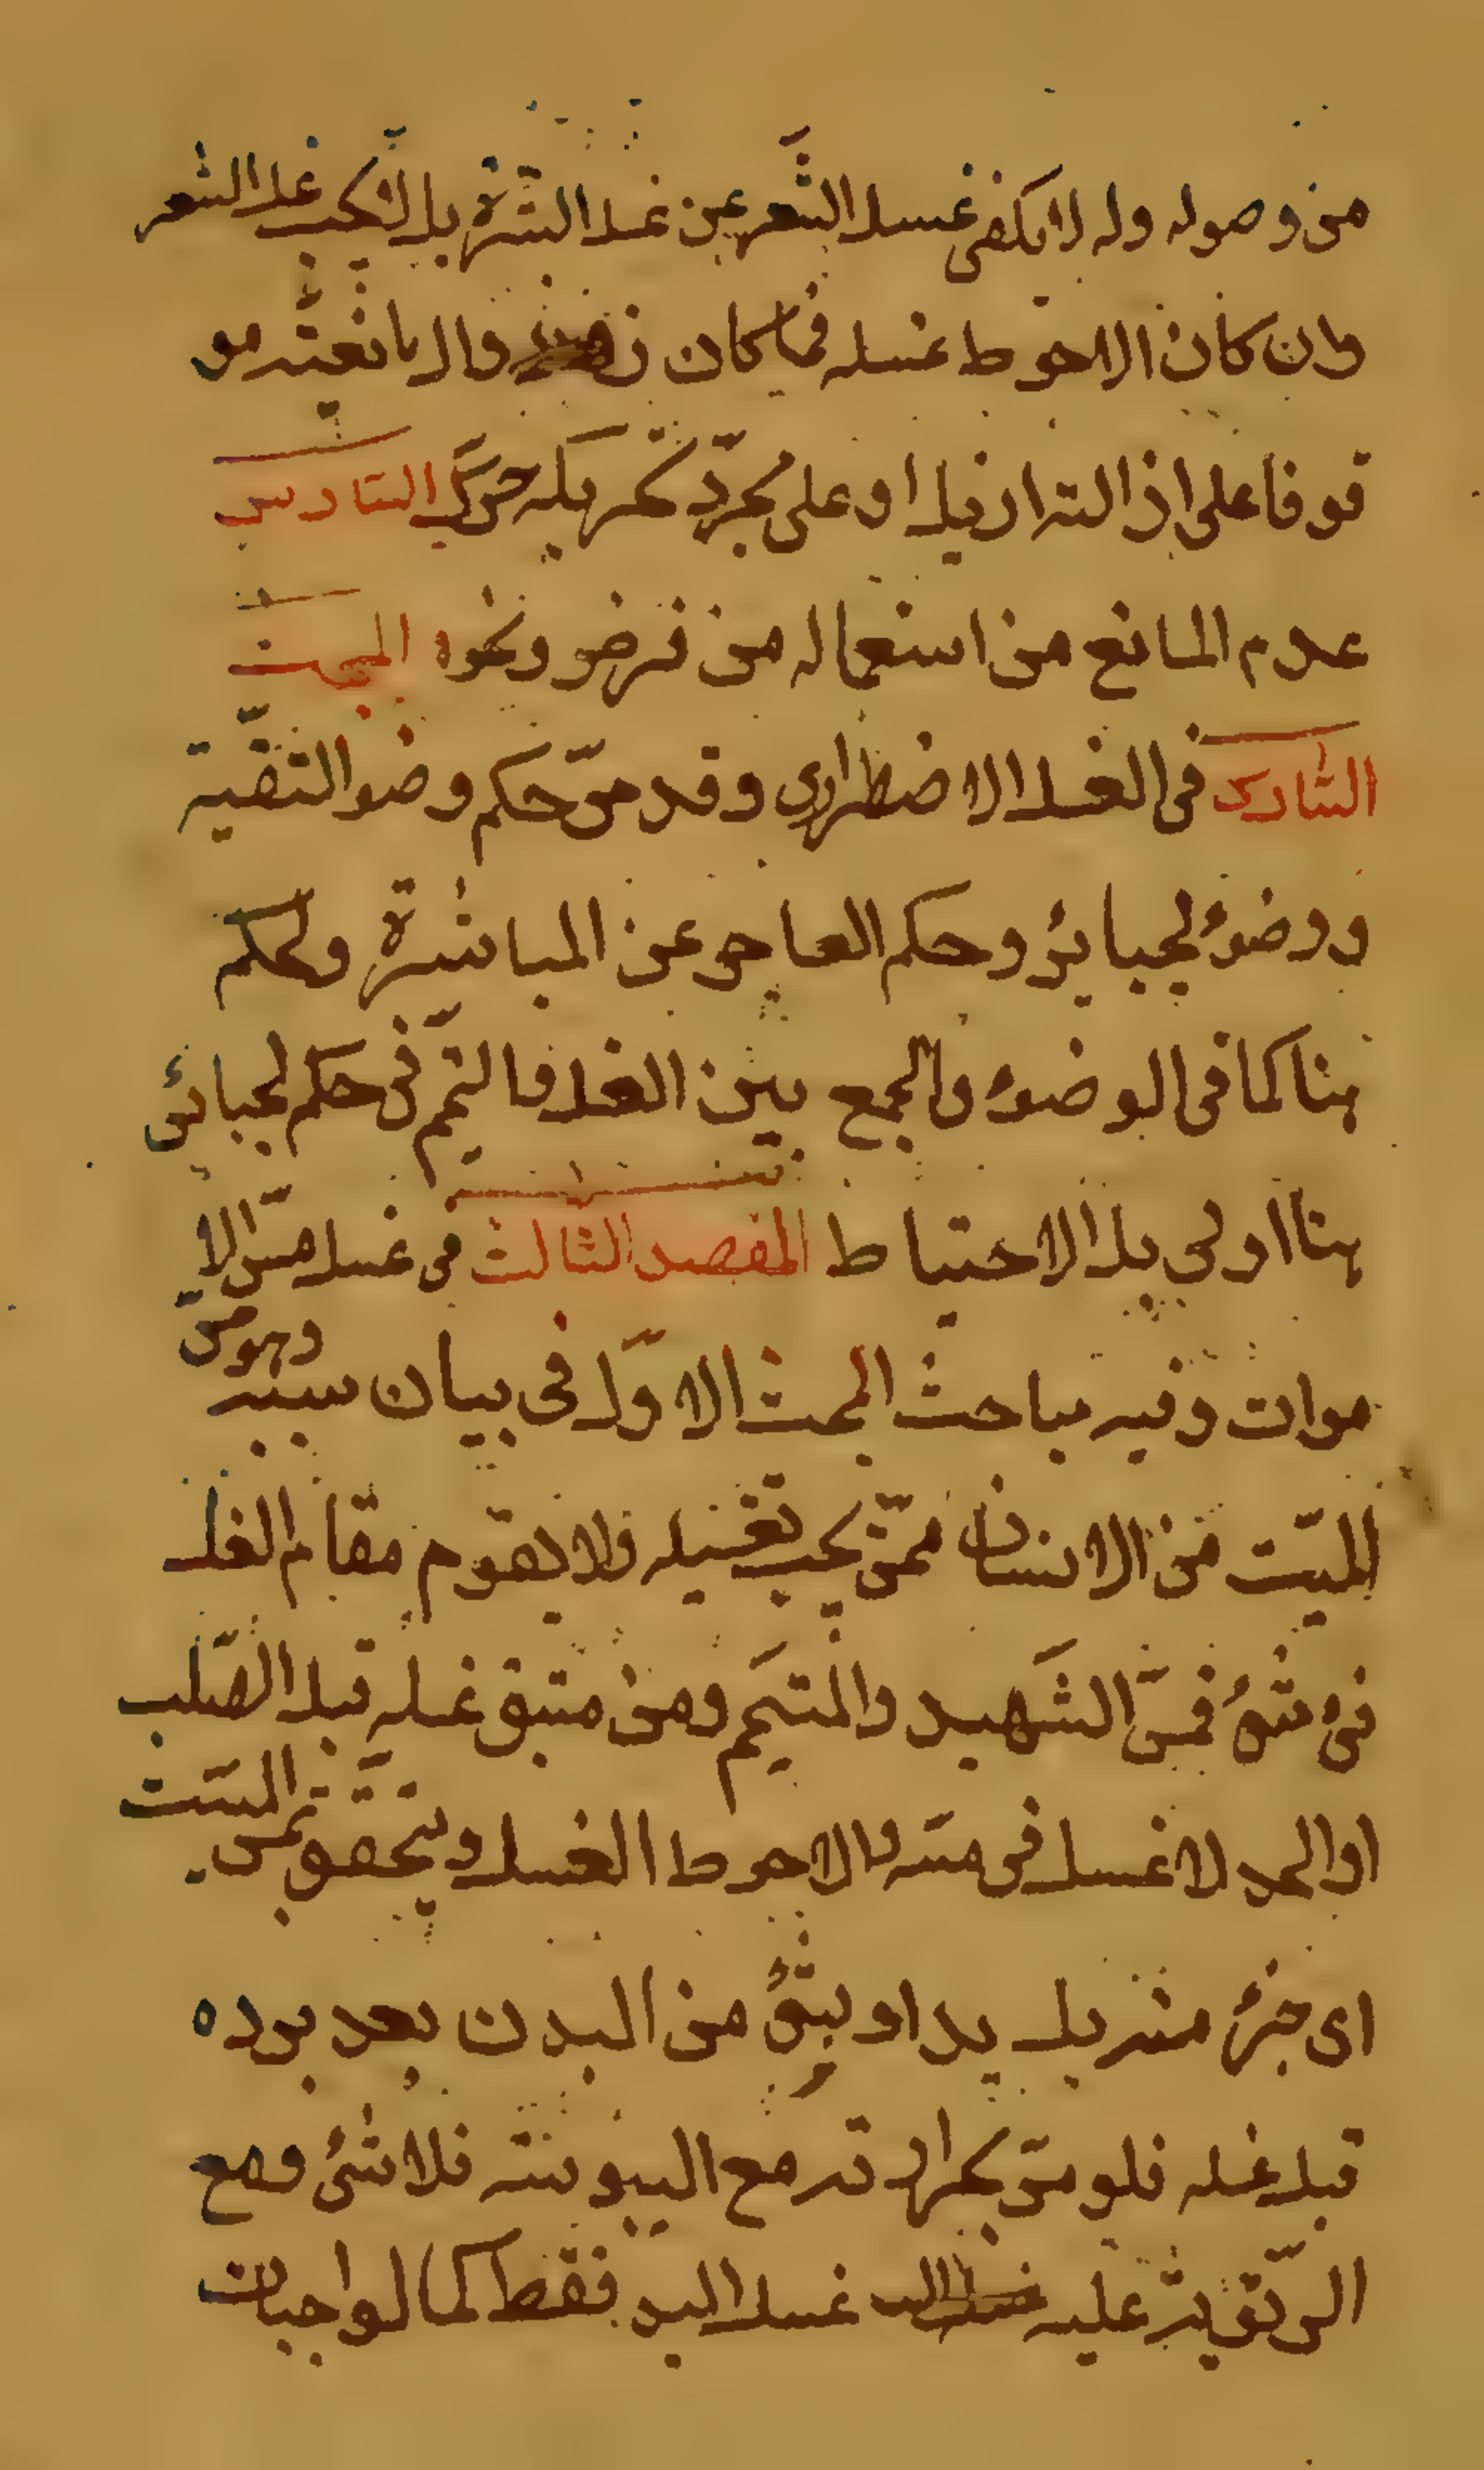 من وصوله وله لا يكفى غسل الشعر عن غسل البشرة بل لا يجب غسل الشعر
وان كان الاحوط غسله فيما كان والا يا نعيته مو
قوفا على اذالته ازيل او على مجرد تحريكه حرك السادس
عدم المانع من استعماله من نرض ونحوه المبحث
السادس فى الغسل الاضطرارى وقد مر حكم وضوء التقية
ووضوء الجبائر وحكم العاجز عن المباشرة والحكم
هنا كما فى الوضوء والجمع بين الغسل والتيمم فى حكم الجبائر
هنا اولى بل الاحتياط المقصد الثالث فى غسل مس الا
موات وفيه مباحث المبحث الاول فى بيان سببه وهو مس
الميت من الانسان ممن يجب تغسيله ولا يقوم مقام الغسل
فى شئ فمس الشهيد والمتيمم ومن سبق غسله قبل الصلب
او الحد لا غسل فى مسه والاحوط الغسل ويتحقق بمس الميت
اى جزء منه بل يد او بئ من البدن بعد برده
قبل غسله فلو مس بحرارته مع اليبوسته فلا شئ ومع
الرقوبة عليه غسل اليد فقط كما لواجبات